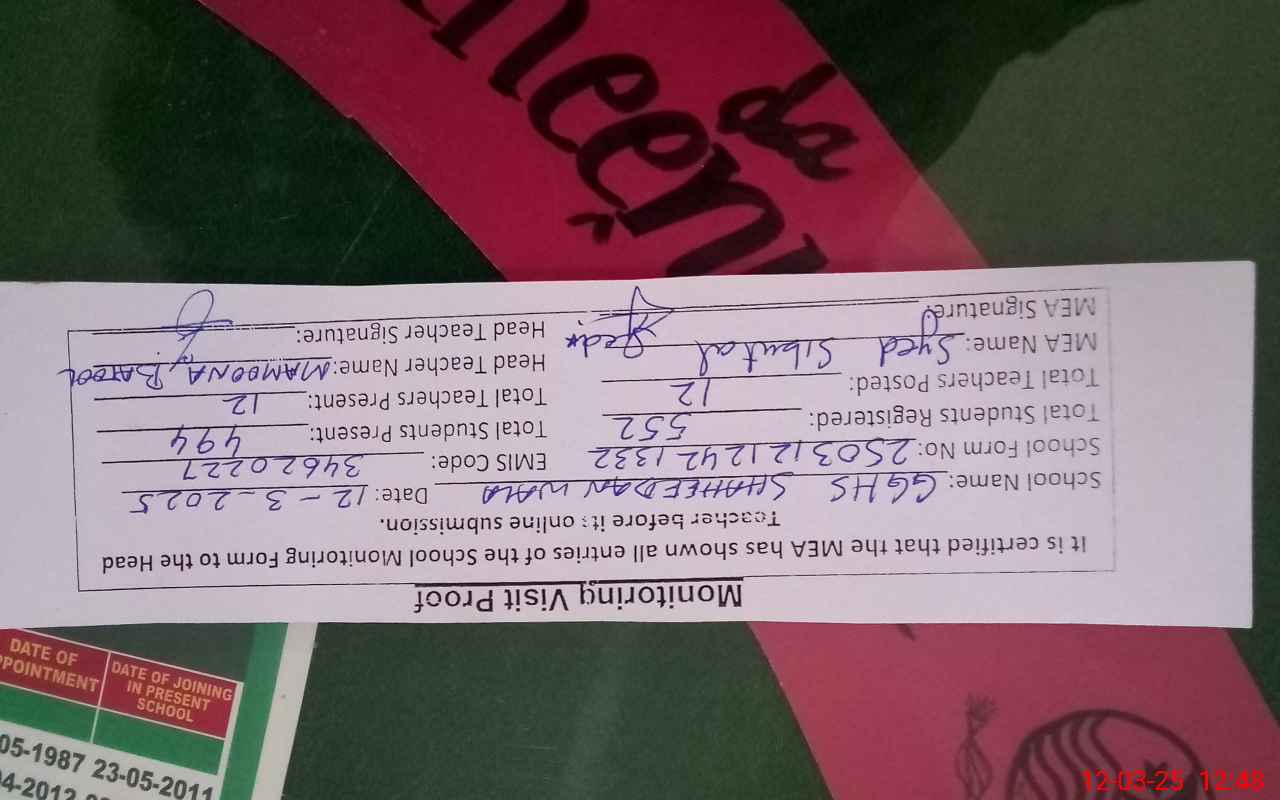 Monitoring Visit Proof
It is certified that the MEA has shown all entries of the School Monitoring Form to the Head
Teacher before its online submission.
School Name: GGHS SHAHEEDAN WALA Date: 12-3-2025
School Form No: 25031212421332 EMIS Code: 34620227
Total Students Registered: 552 Total Students Present: 494
Total Teachers Posted: 12 Total Teachers Present: 12
MEA Name: Syed Head Teacher Name: MAMOONA BATOOL
MEA Signature: Head Teacher Signature:
DATE OF
PPOINTMENT
DATE OF JOINING
IN PRESENT
SCHOOL
05-1987 23-05-2011
04-2012
12-03-25 12:48